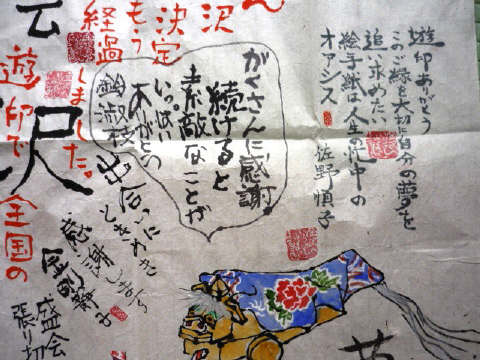 遊印ありがとう
このご縁を大切に自分の夢を
追い求めたい
絵手紙は人生の忙中の
オアシス
佐野慎子
がくさんに感謝
続けると
素敵なことが
いっぱい
ありがとう
出合いに
ときめき
感謝します
沢
決定
もう
経過
しました。
遊印で
沢
全国の
盛会
張り切